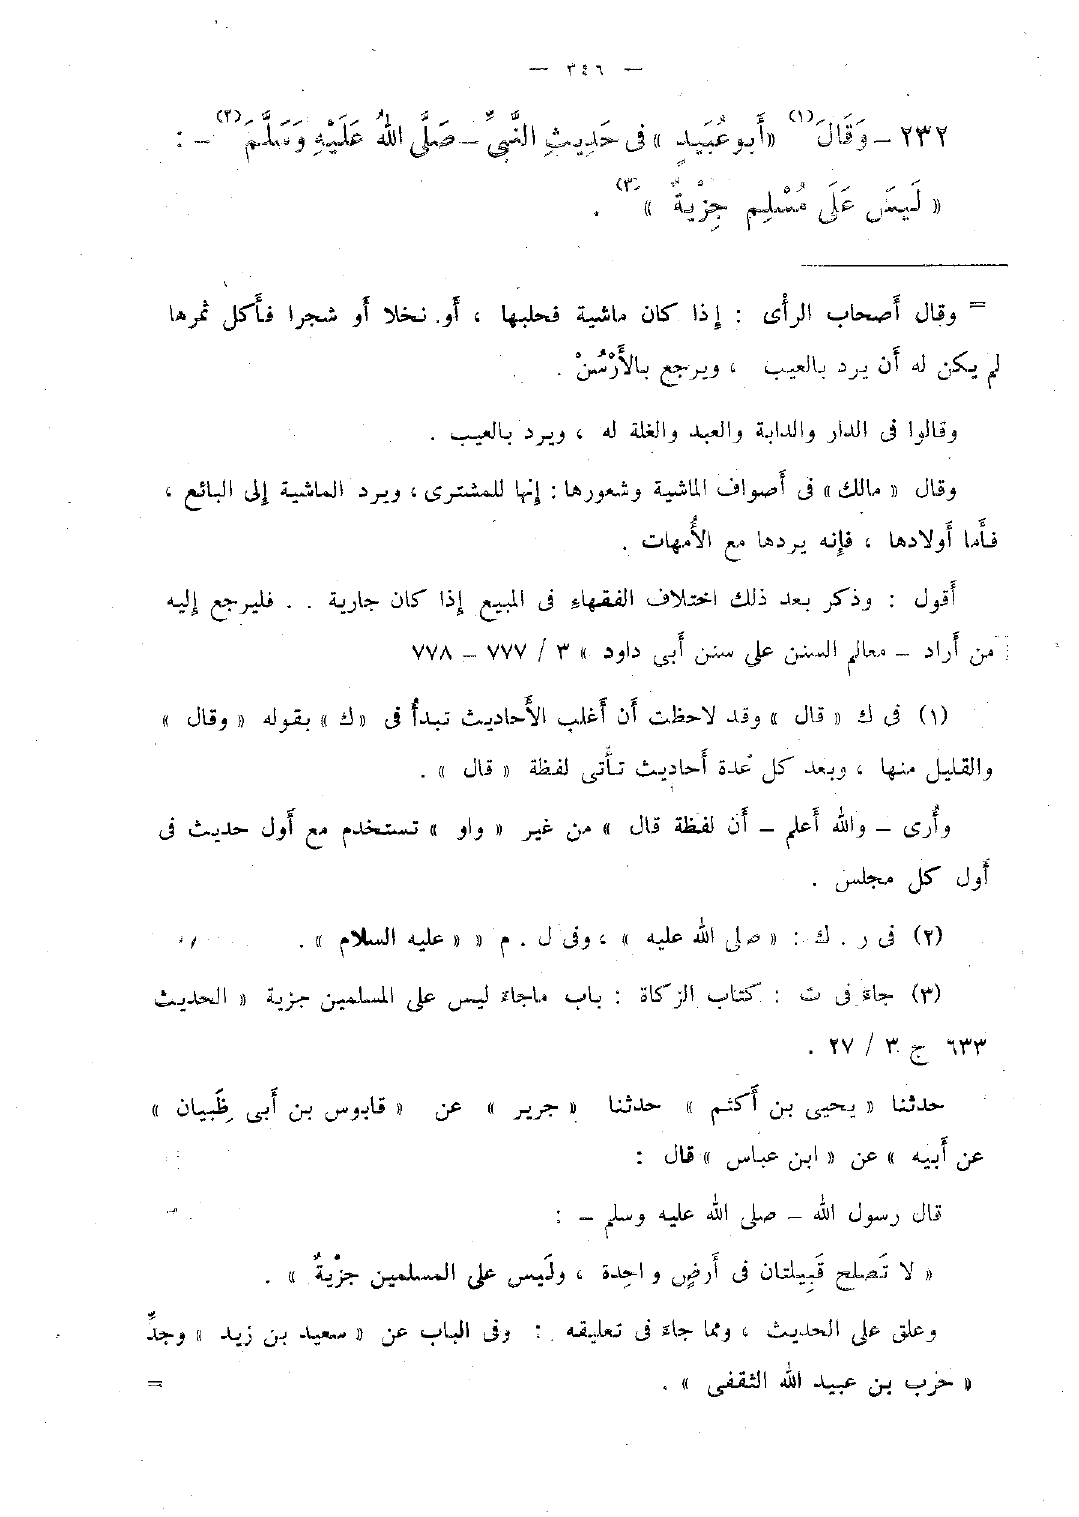 — ٣٤٦ —
٢٣٢ – وَقَالَ(١) «أَبو عُبَيدٍ» فى حَدِيثِ النَّبِىِّ – صَلَّى اللهُ عَلَيْهِ وَسَلَّمَ(٢) – :
« لَيسَ عَلَى مُسْلِم جِزْيةٌ »(٣) .
= وقال أَصحاب الرأْى : إِذا كان ماشية فحلبها ، أَو. نخلا أَو شجرا فأَكل ثمرها
لم يكن له أَن يرد بالعيب ، ويرجع بالأَرْشْ .
وقالوا فى الدار والدابة والعبد والغلة له ، ويرد بالعيب .
وقال « مالك » فى أَصواف الماشية وشعورها : إِنها للمشترى ، ويرد الماشية إِلى البائع ،
فأَما أَولادها ، فإِنه يردها مع الأُمهات .
أَقول : وذكر بعد ذلك اختلاف الفقهاءِ فى المبيع إِذا كان جارية . . فليرجع إِليه
من أَراد – معالم السنن على سنن أَبى داود » ٣ / ٧٧٧ – ٧٧٨
(١) فى ك « قال » وقد لاحظت أَن أَغلب الأَحاديث تبدأُ فى «ك» بقوله « وقال »
والقليل منها ، وبعد كل عُدة أَحاديث تأْتى لفظة « قال » .
وأُرى – والله أَعلم – أَن لفظة قال » من غير « واو » تستخدم مع أَول حديث فى
أَول كل مجلس .
(٢) فى ر . ك : « صلى الله عليه » ، وفى ل . م « « عليه السلام » .
(٣) جاءَ فى ت : كتاب الزكاة : باب ماجاءَ ليس على المسلمين جزية « الحديث
٦٣٣ ج ٣ / ٢٧ .
حدثنا « يحيى بن أَكثم » حدثنا « جرير » عن « قابوس بن أَبى ظَبيان »
عن أَبيه » عن « ابن عباس » قال :
قال رسول الله – صلى الله عليه وسلم – :
« لا تَصلح قَبِيلتان فى أَرضٍ واحِدة ، ولَيس على المسلمين جزْيةٌ » .
وعلق على الحديث ، ومما جاءَ فى تعليقه : وفى الباب عن « سعيد بن زيد » وجدِّ
« حرب بن عبيد الله الثقفى » . =